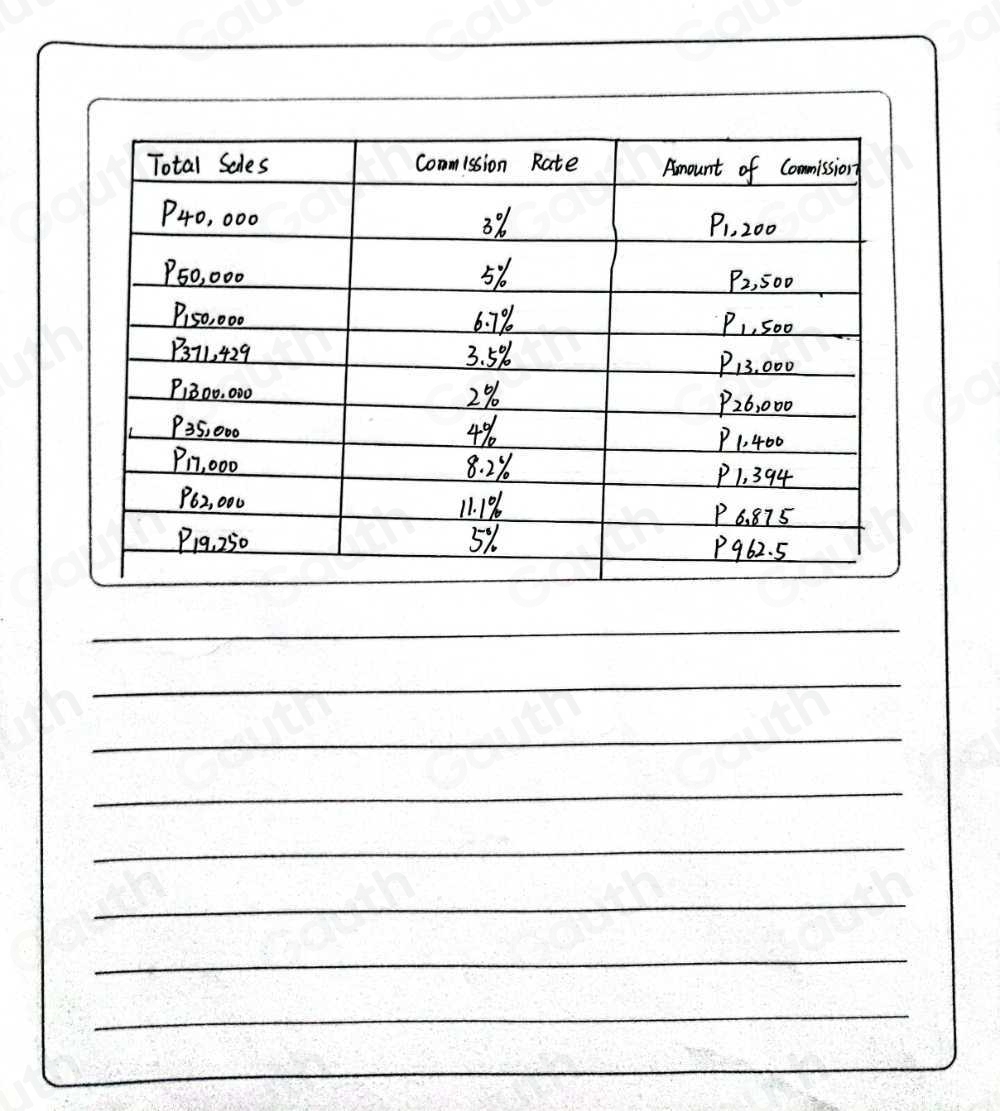 Total Sales Commission Rate Amount of Commission
P40,000 3% P1,200
P50,000 5% P2,500
P150,000 6.7% P1,500
P371,429 3.5% P13,000
P1300.000 2% P26,000
P35,000 4% P1,400
P17,000 8.2% P1,394
P62,000 11.1% P6,875
P19,250 5% P962.5